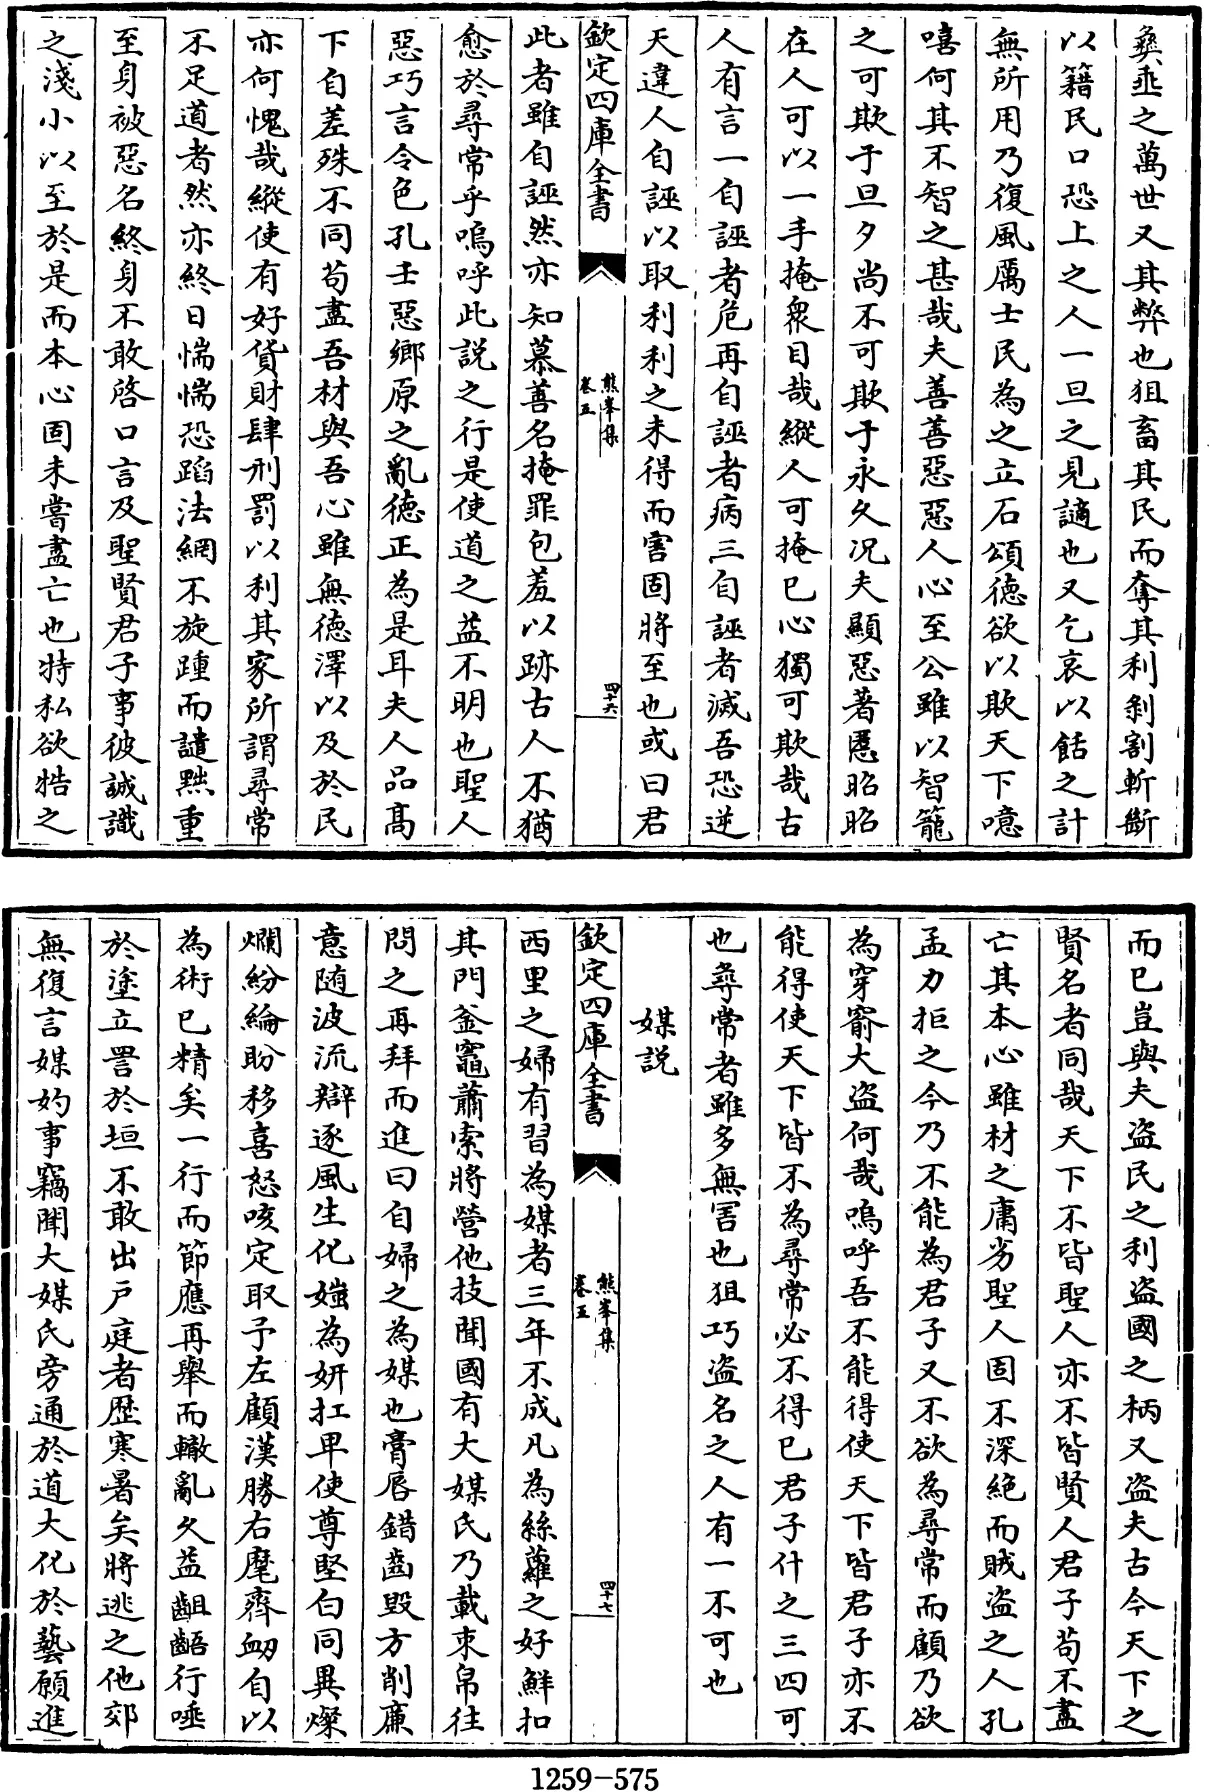 彜垂之萬世又其弊也狙畜其民而奪其利剝割斬斷
以籍民口恐上之人一旦之見讁也又乞哀以餂之計
無所用乃復風厲士民為之立石頌德欲以欺天下噫
嘻何其不智之甚哉夫善善惡惡人心至公雖以智籠
之可欺于旦夕尚不可欺于永久况夫顯惡著慝昭昭
在人可以一手掩衆目哉縱人可掩己心獨可欺哉古
人有言一自誣者危再自誣者病三自誣者滅吾恐逆
天違人自誣以取利利之未得而害固將至也或曰君
欽定四庫全書
熊峯集
卷五
四十六
此者雖自誣然亦知慕善名掩罪包羞以跡古人不猶
愈於尋常乎嗚呼此說之行是使道之益不明也聖人
惡巧言令色孔壬惡鄉原之亂德正為是耳夫人品髙
下自差殊不同茍盡吾材與吾心雖無德澤以及於民
亦何愧哉縱使有好貨財肆刑罰以利其家所謂尋常
不足道者然亦終日惴惴恐蹈法網不旋踵而譴黜重
至身被惡名終身不敢啓口言及聖賢君子事彼誠識
之淺小以至於是而本心固未嘗盡亡也特私欲牿之
而已豈與夫盗民之利盗國之柄又盗夫古今天下之
賢名者同哉天下不皆聖人亦不皆賢人君子茍不盡
亡其本心雖材之庸劣聖人固不深絶而賊盗之人孔
孟力拒之今乃不能為君子又不欲為尋常而顧乃欲
為穿窬大盗何哉嗚呼吾不能得使天下皆君子亦不
能得使天下皆不為尋常必不得已君子什之三四可
也尋常者雖多無害也狙巧盗名之人有一不可也
媒説
欽定四庫全書
熊峯集
卷五
四十七
西里之婦有習為媒者三年不成凡為絲蘿之好鮮扣
其門釜竈蕭索將營他技聞國有大媒氏乃載朿帛往
問之再拜而進曰自婦之為媒也膏唇錯齒毀方削廉
意随波流辯逐風生化媸為妍扛甲使尊堅白同異燦
爛紛綸盼移喜怒咳定取予左顧漢勝右麾齊衂自以
為術已精矣一行而節應再舉而轍亂久益齟齬行唾
於塗立詈於垣不敢出戶庭者歴寒暑矣將逃之他郊
無復言媒妁事竊聞大媒氏旁通於道大化於藝願進
1259-575